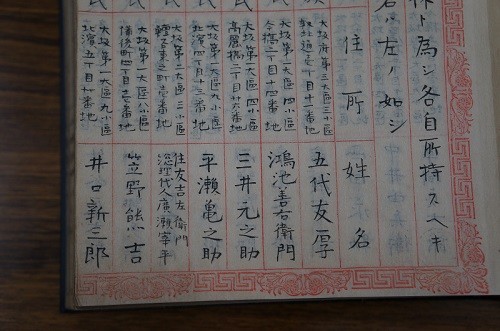 ト為シ各自所持スヘキ
名ハ左ノ如シ
住所 姓名
大坂府第三大區十三小區
五代友厚
大坂第一大區四小區
鴻池善右衛門
大坂第一大區四小區
高麗橋二丁目廿六番地
三井元之助
大坂第一大區九小區
北濱四丁目十三番地
平瀬亀之助
大坂第二大區三小區
住友吉左衛門
総理代人廣瀬宰平
大坂第一大區八小區
備後町四丁目壱番地
笠野熊吉
大坂第一大區九小區
北濱五丁目十番地
井口新三郎